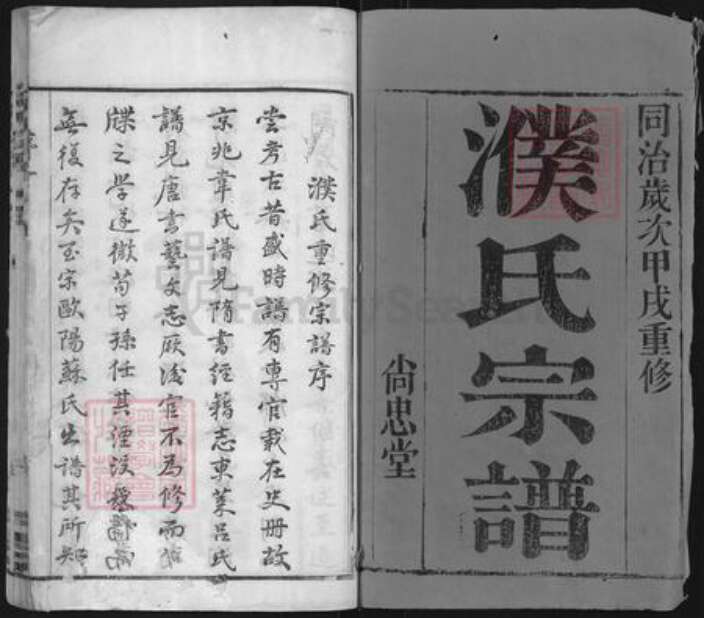 同治歲次甲戌重修
濮氏宗譜
尙忠堂
濮氏重修宗譜序
尝考古昔盛時譜有專官載在史册故
京兆韋氏譜見隋書經籍志東萊呂氏
譜見唐書藝文志厥後官不為修而
牒之學遂微苟子孫任其湮没
無復存矣至宋歐陽蘇氏出譜其所知